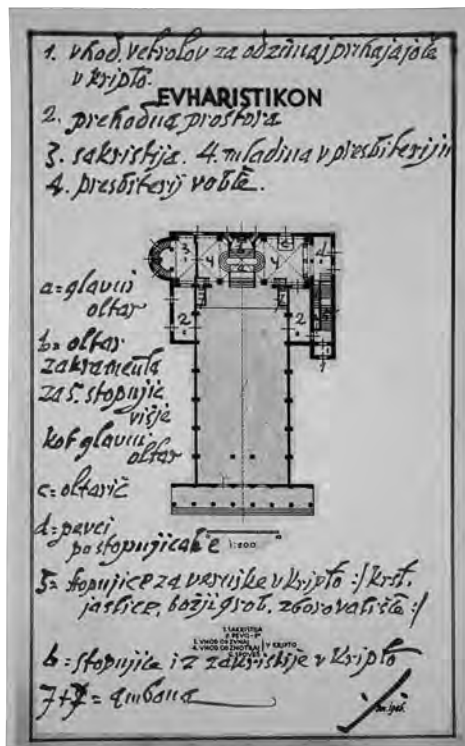 1. vhod. vetrolov za od zunaj prihajajoče
v kripto.
EVHARISTIKON
2. prehodna prostora
3. sakristija. 4. mladina v presbiteriju
4. presbiterij vobče.
a = glavni
oltar
b = oltar
zakramenta
za 5. stopnjic
višje
kot glavni
oltar
c = oltarič
d = pevci
po stopnjicah e
1:200
5 = stopnjice za vernike v kripto :/ krst.
jaslice, božji grob, zborovališče :/
1. SAKRISTIJA
3. VHOD OD ZUNAJ
4. VHOD OD ZNOTRAJ
V KRIPTO
6 = stopnjice iz zakristije v kripto
7+7 = ambona